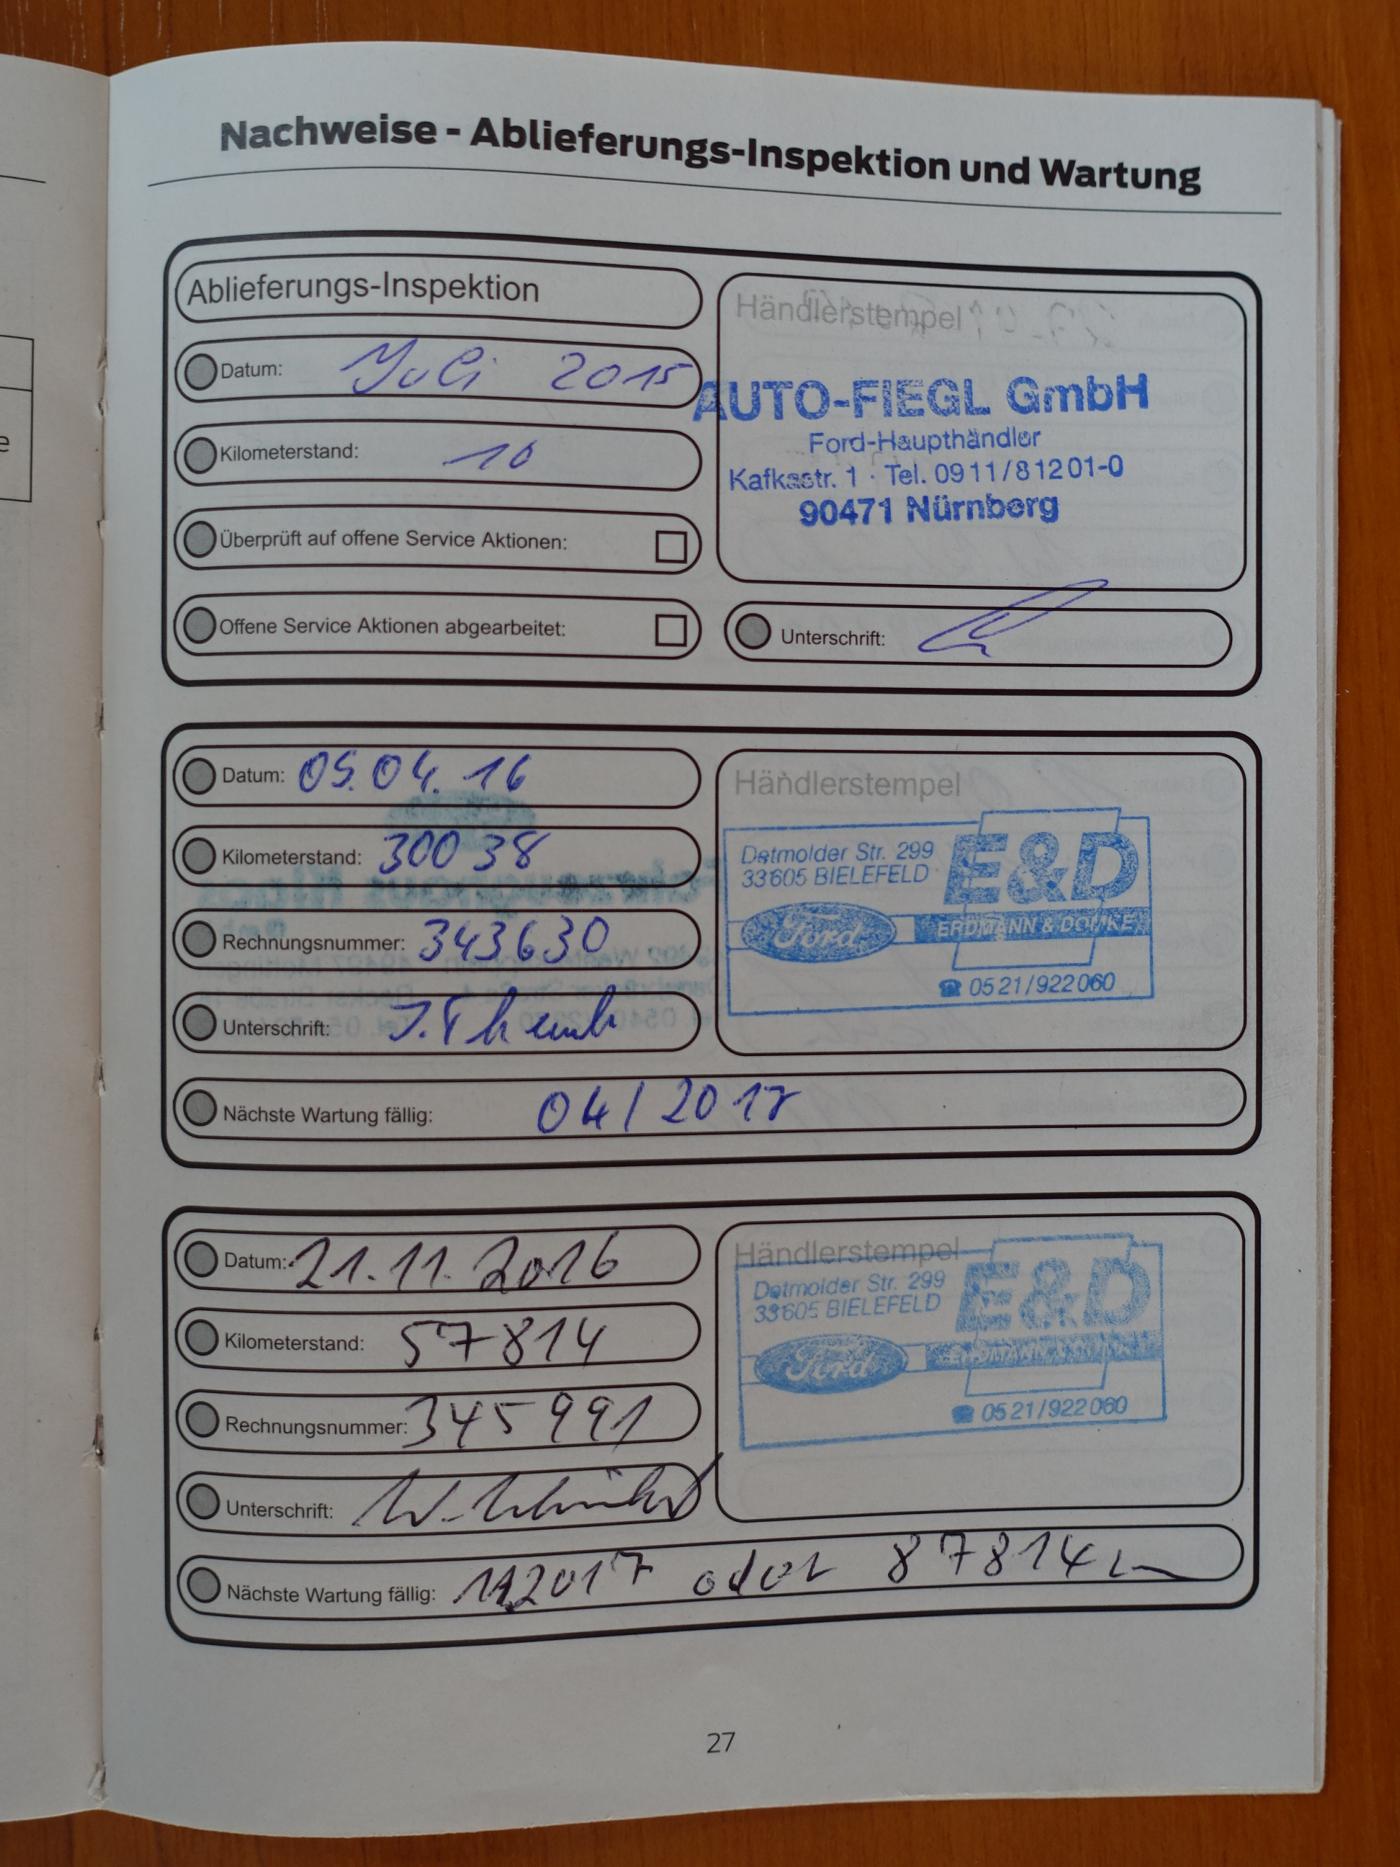 Nachweise - Ablieferungs-Inspektion und Wartung
Ablieferungs-Inspektion
Datum: Juli 2015
Kilometerstand: 10
Überprüft auf offene Service Aktionen:
Offene Service Aktionen abgearbeitet:
Händlerstempel
AUTO-FIEGL GmbH
Ford-Haupthändler
Kafkastr. 1 · Tel. 0911/81201-0
90471 Nürnberg
Unterschrift:
Datum: 05.04.16
Kilometerstand: 30038
Rechnungsnummer: 343630
Unterschrift:
Händlerstempel
Detmolder Str. 299
33605 BIELEFELD
E&D
Ford
ERDMANN & DOMKE
☎ 0521/922060
Nächste Wartung fällig: 04/2017
Datum: 21.11.2016
Kilometerstand: 57814
Rechnungsnummer: 345991
Unterschrift:
Händlerstempel
Detmolder Str. 299
33605 BIELEFELD
E&D
Ford
☎ 0521/922060
Nächste Wartung fällig: 11.2017 oder 87814
27